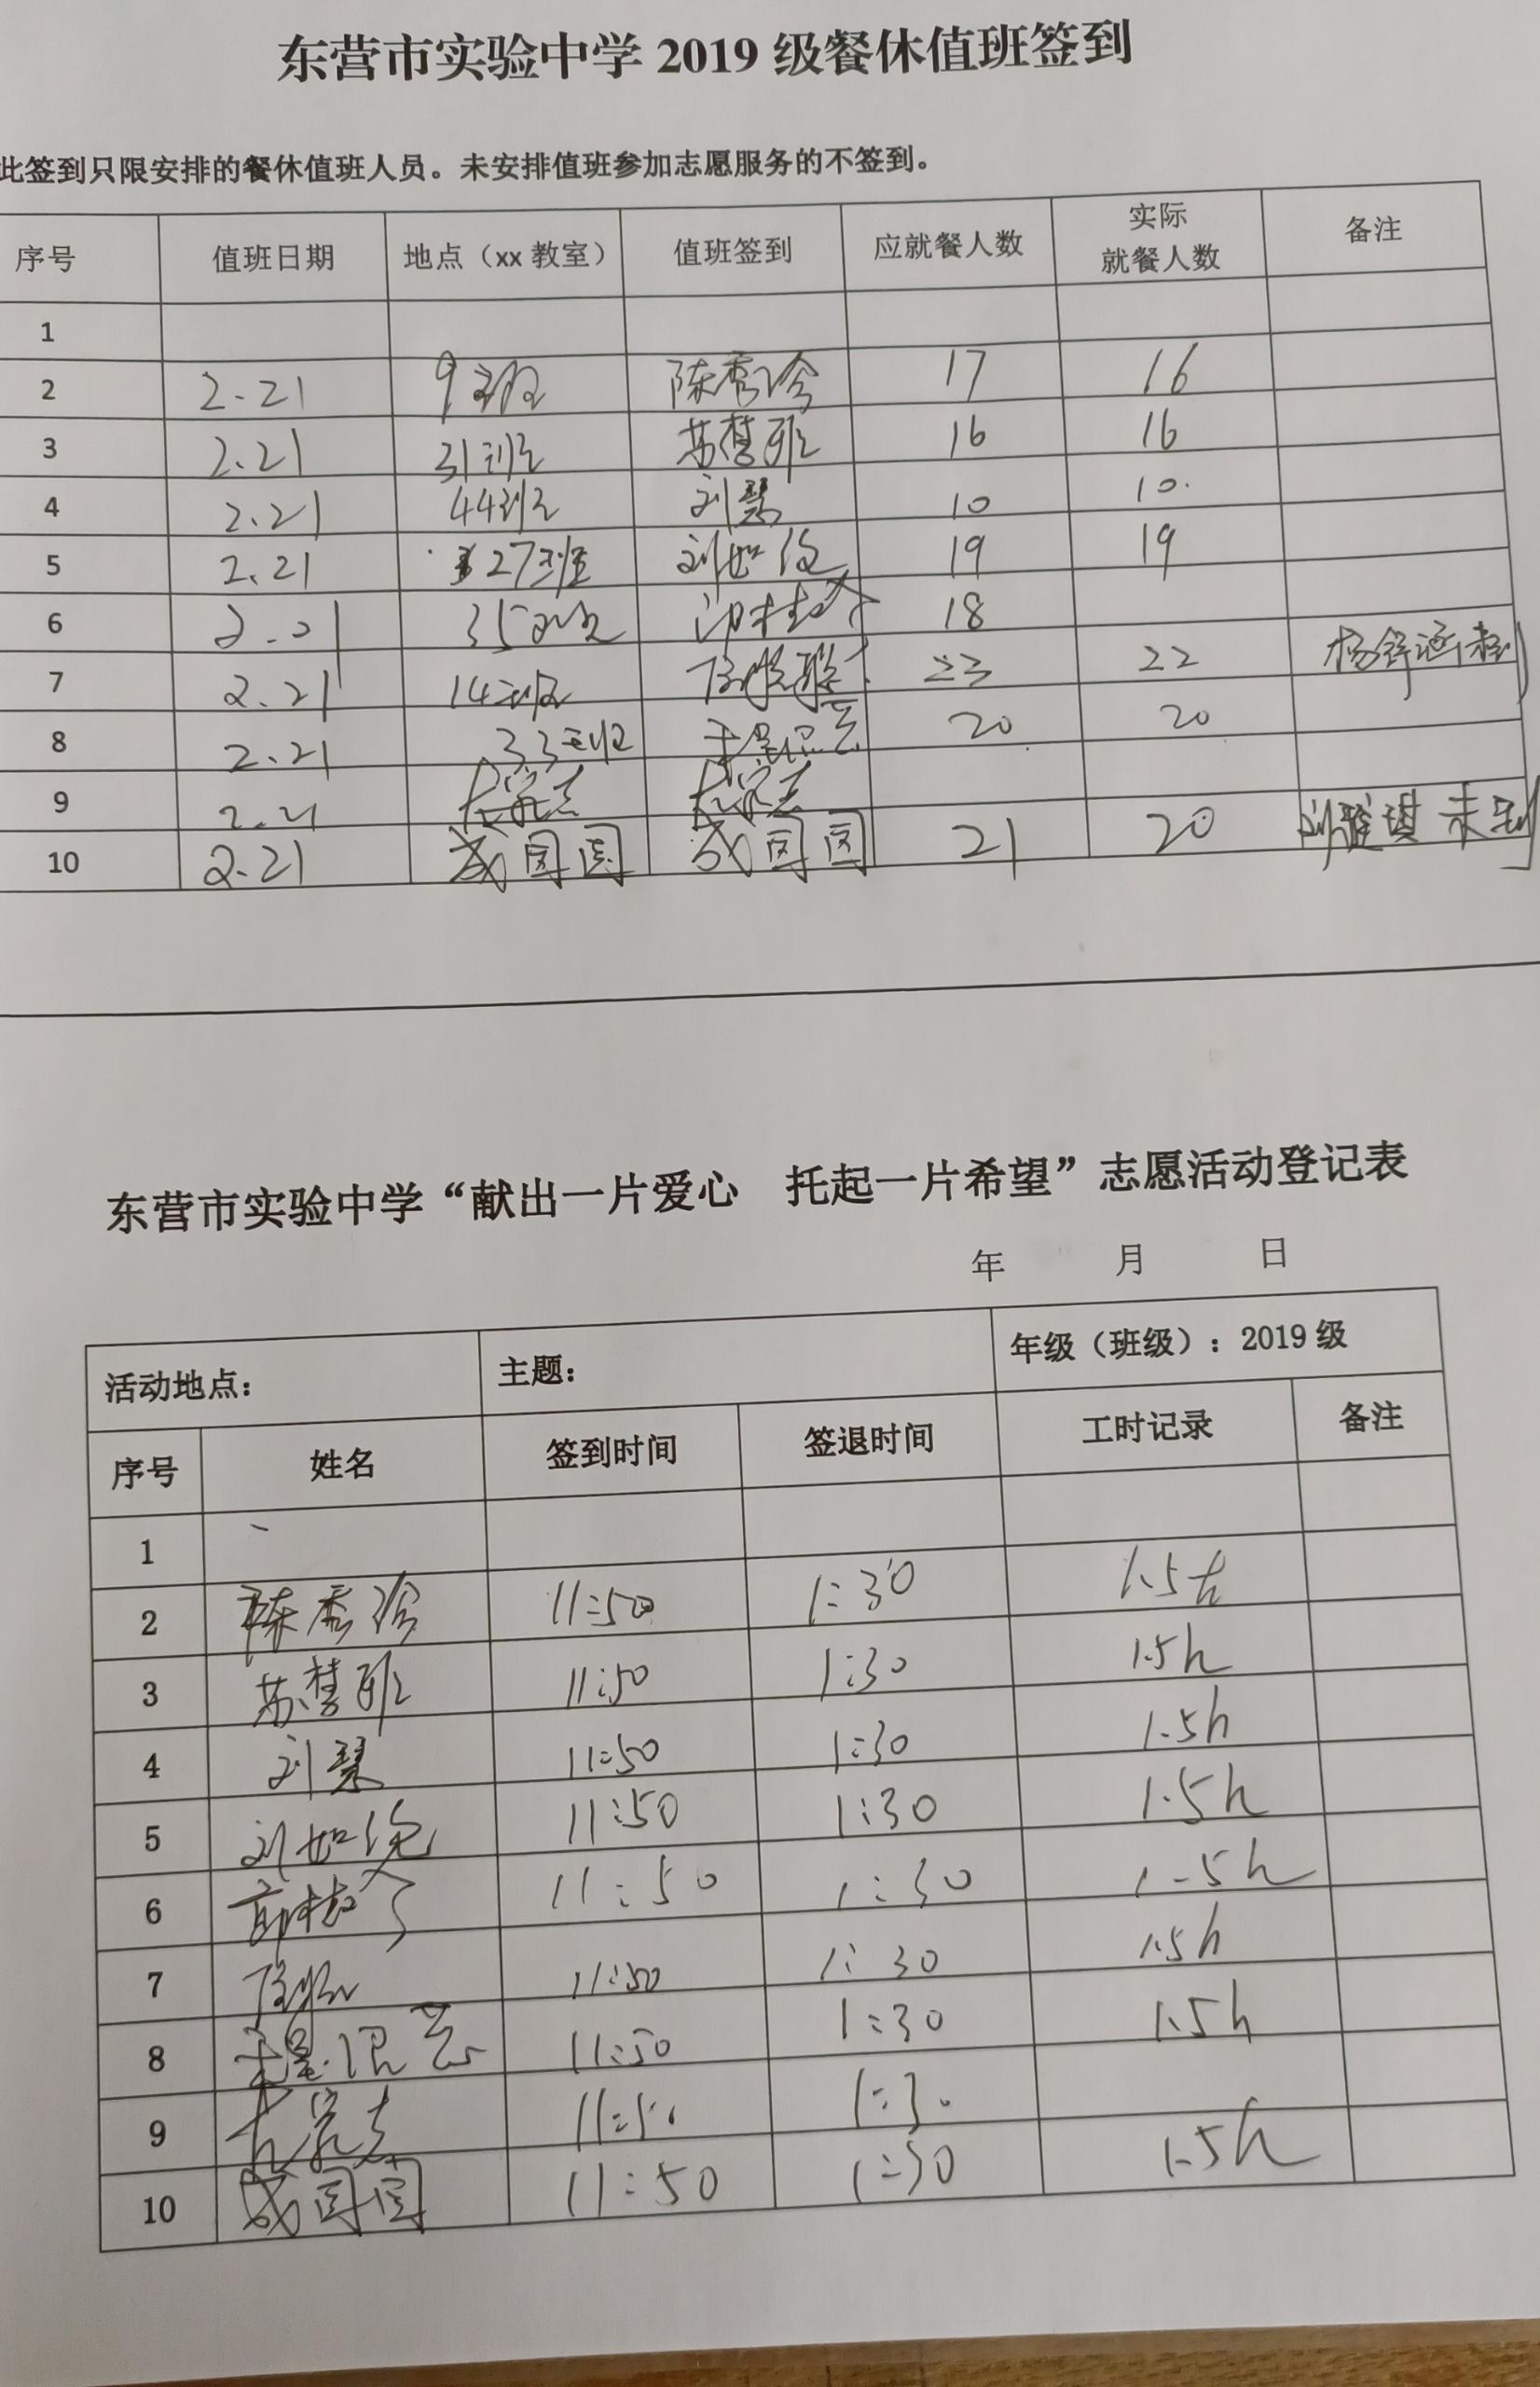 东营市实验中学 2019 级餐休值班签到
此签到只限安排的餐休值班人员。未安排值班参加志愿服务的不签到。
序号 值班日期 地点（xx 教室） 值班签到 应就餐人数 实际就餐人数 备注
1
2 2.21 9班 陈秀玲 17 16
3 2.21 31班 苏慧 16 16
4 2.21 44班 刘慧 10 10.
5 2.21 27班 刘如 19 19
6 2.21 35班 18
7 2.21 14班 23 22 杨舒涵未到
8 2.21 33班 20 20
9 2.21
10 2.21 成国国 成国国 21 20 刘雅琪 未到
东营市实验中学“献出一片爱心 托起一片希望”志愿活动登记表
年 月 日
活动地点： 主题： 年级（班级）：2019 级
序号 姓名 签到时间 签退时间 工时记录 备注
1
2 陈秀玲 11:50 1:30 1.5h
3 苏慧 11:50 1:30 1.5h
4 刘慧 11:50 1:30 1.5h
5 刘如 11:50 1:30 1.5h
6 11:50 1:30 1.5h
7 11:50 1:30 1.5h
8 11:50 1:30 1.5h
9 11:50 1:30
10 成国国 11:50 1:30 1.5h